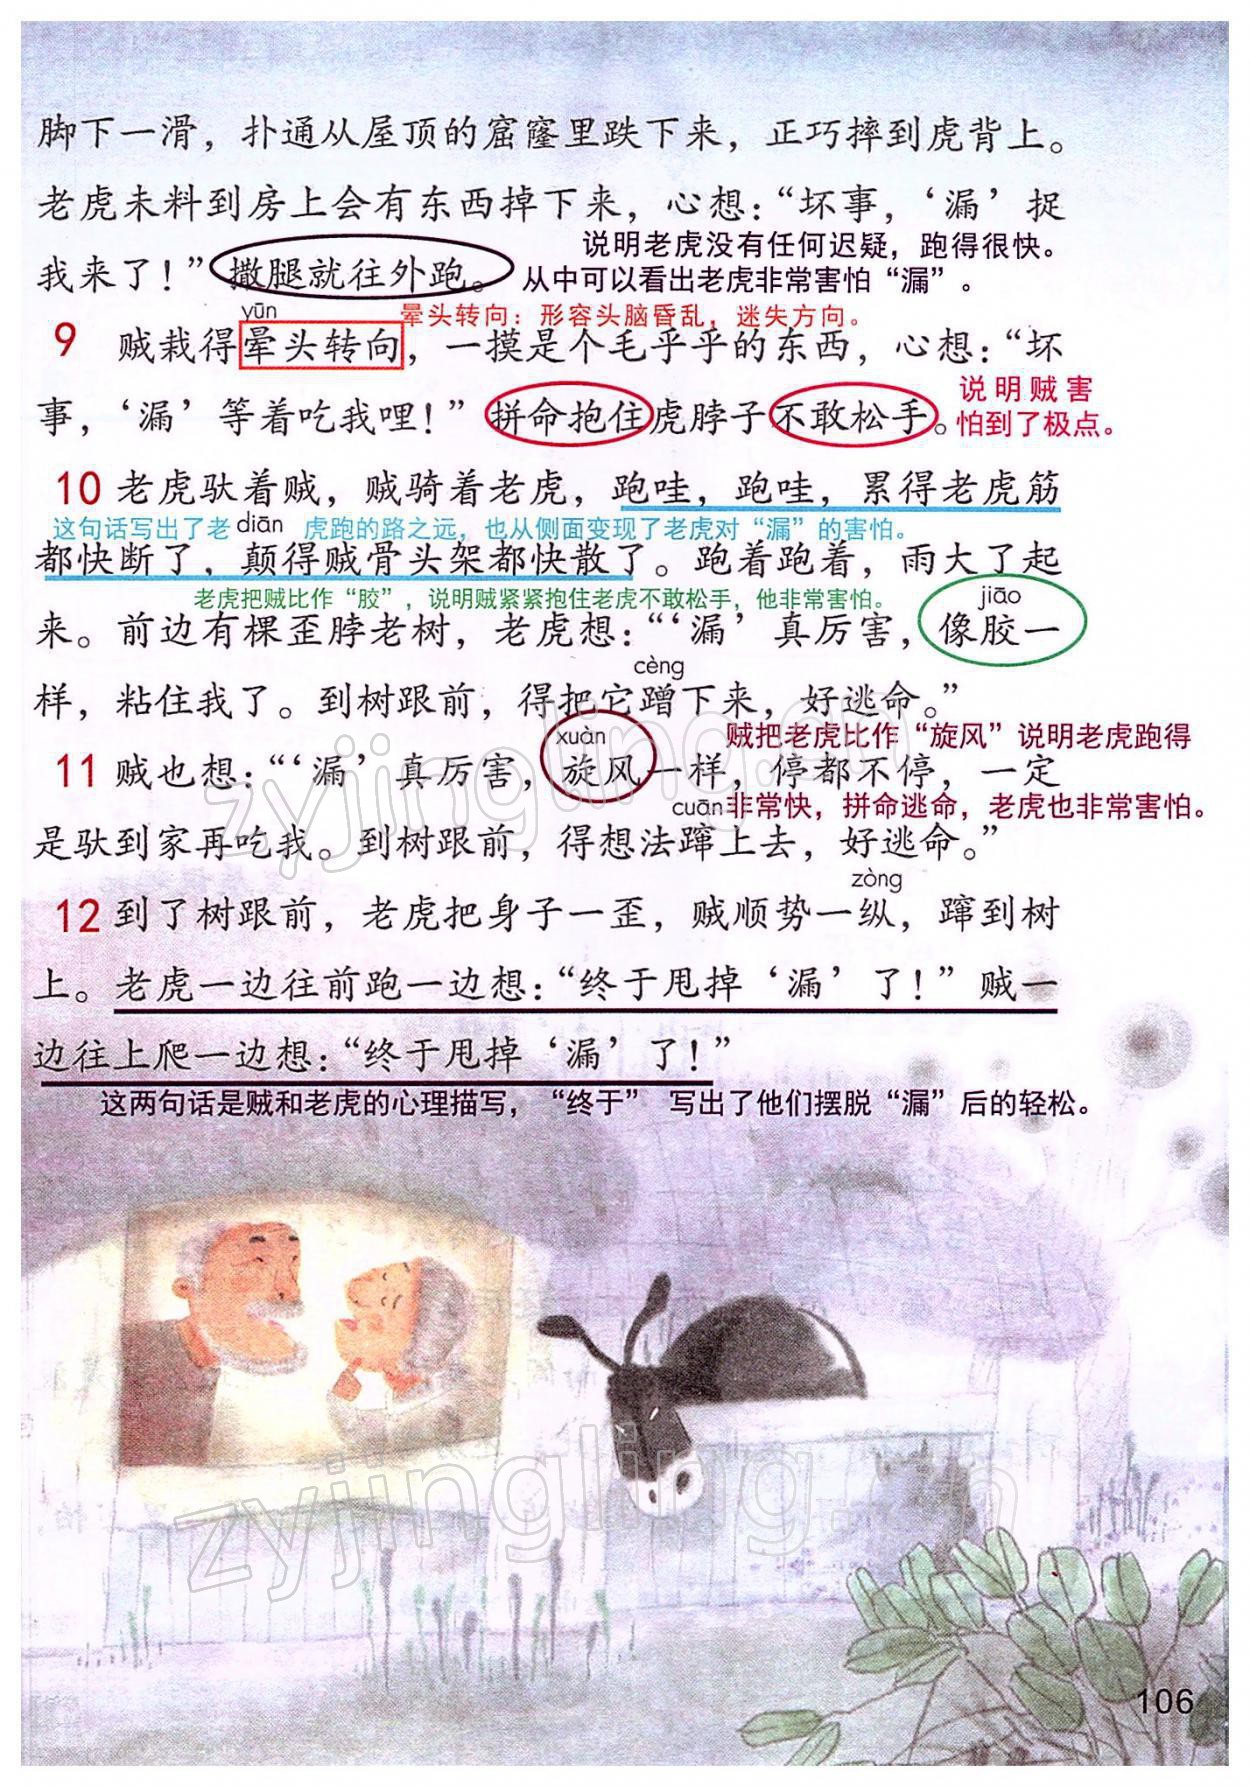 脚下一滑，扑通从屋顶的窟窿里跌下来，正巧摔到虎背上。
老虎未料到房上会有东西掉下来，心想：“坏事，‘漏’捉
说明老虎没有任何迟疑，跑得很快。
我来了！”撒腿就往外跑。从中可以看出老虎非常害怕“漏”。
yūn 晕头转向：形容头脑昏乱，迷失方向。
9 贼栽得晕头转向，一摸是个毛乎乎的东西，心想：“坏
说明贼害
事，‘漏’等着吃我哩！”拼命抱住虎脖子不敢松手。怕到了极点。
10 老虎驮着贼，贼骑着老虎，跑哇，跑哇，累得老虎筋
这句话写出了老 diān 虎跑的路之远，也从侧面变现了老虎对“漏”的害怕。
都快断了，颠得贼骨头架都快散了。跑着跑着，雨大了起
老虎把贼比作“胶”，说明贼紧紧抱住老虎不敢松手，他非常害怕。 jiāo
来。前边有棵歪脖老树，老虎想：“‘漏’真厉害，像胶一
cèng
样，粘住我了。到树跟前，得把它蹭下来，好逃命。”
xuàn 贼把老虎比作“旋风”说明老虎跑得
11 贼也想：“‘漏’真厉害，旋风一样，停都不停，一定
cuān 非常快，拼命逃命，老虎也非常害怕。
是驮到家再吃我。到树跟前，得想法蹿上去，好逃命。”
zòng
12 到了树跟前，老虎把身子一歪，贼顺势一纵，蹿到树
上。老虎一边往前跑一边想：“终于甩掉‘漏’了！”贼一
边往上爬一边想：“终于甩掉‘漏’了！”
这两句话是贼和老虎的心理描写，“终于” 写出了他们摆脱“漏”后的轻松。
zyjingling.cn
zyjingling.cn
106